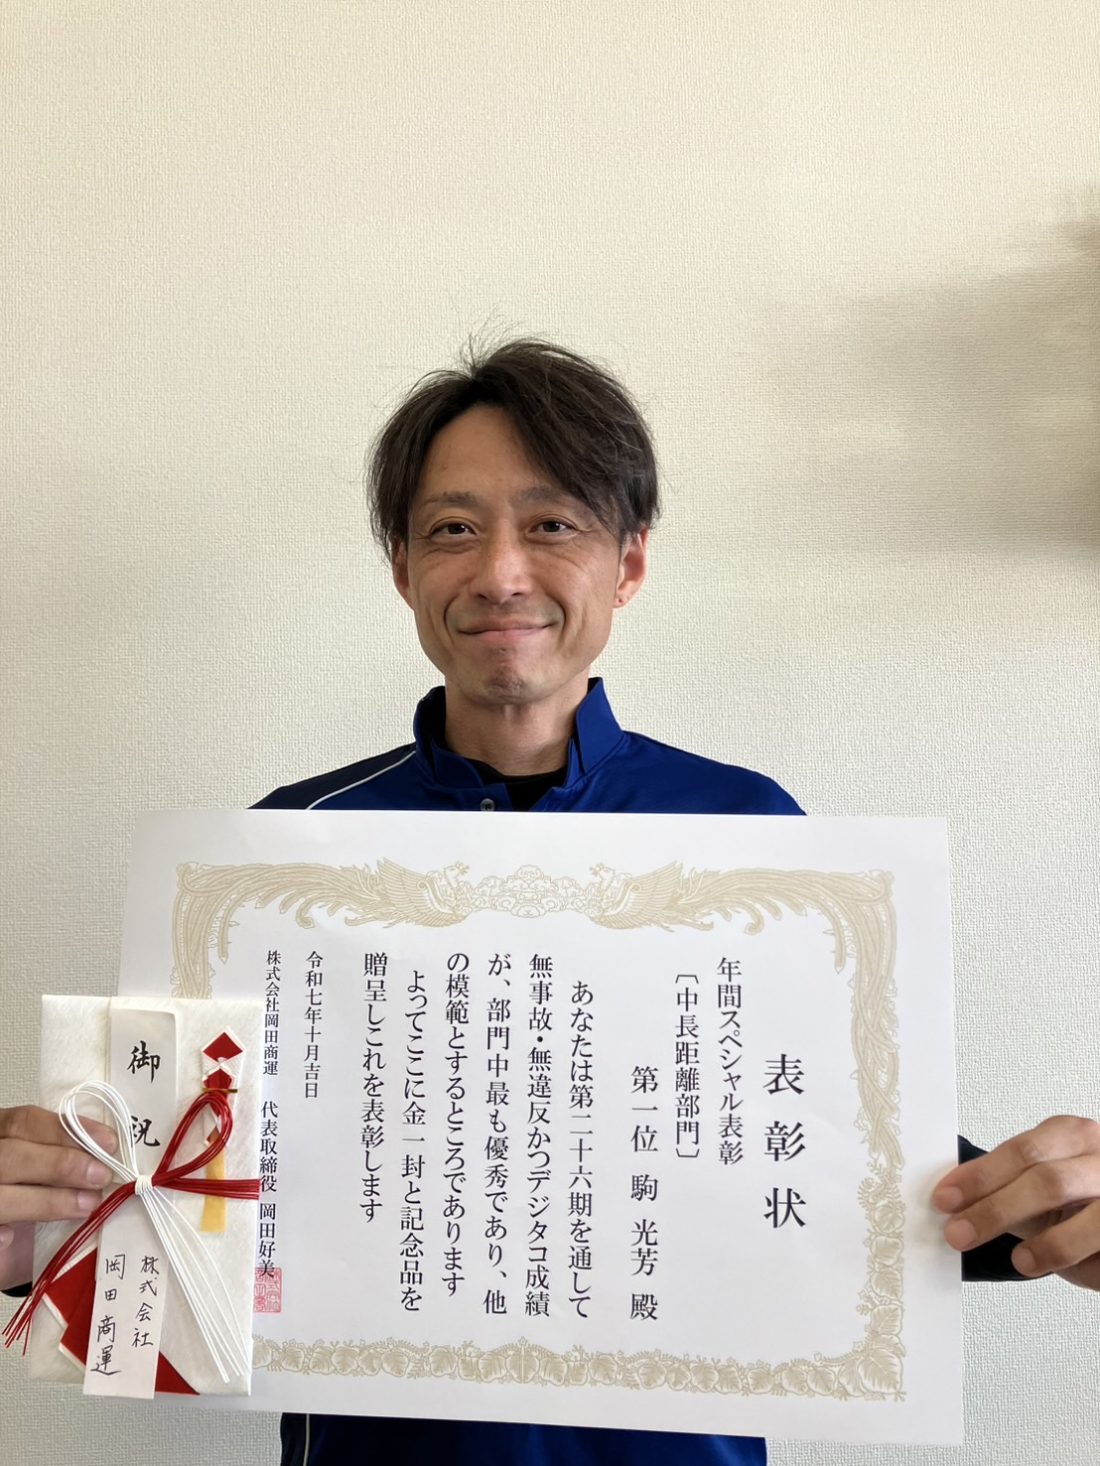 表彰状
年間スペシャル表彰
〔中長距離部門〕
第一位 駒 光芳 殿
あなたは第二十六期を通して
無事故・無違反かつデジタコ成績
が、部門中最も優秀であり、他
の模範とするところであります
よってここに金一封と記念品を
贈呈しこれを表彰します
令和七年十月吉日
株式会社岡田商運 代表取締役 岡田好美
御祝
株式会社
岡田商運